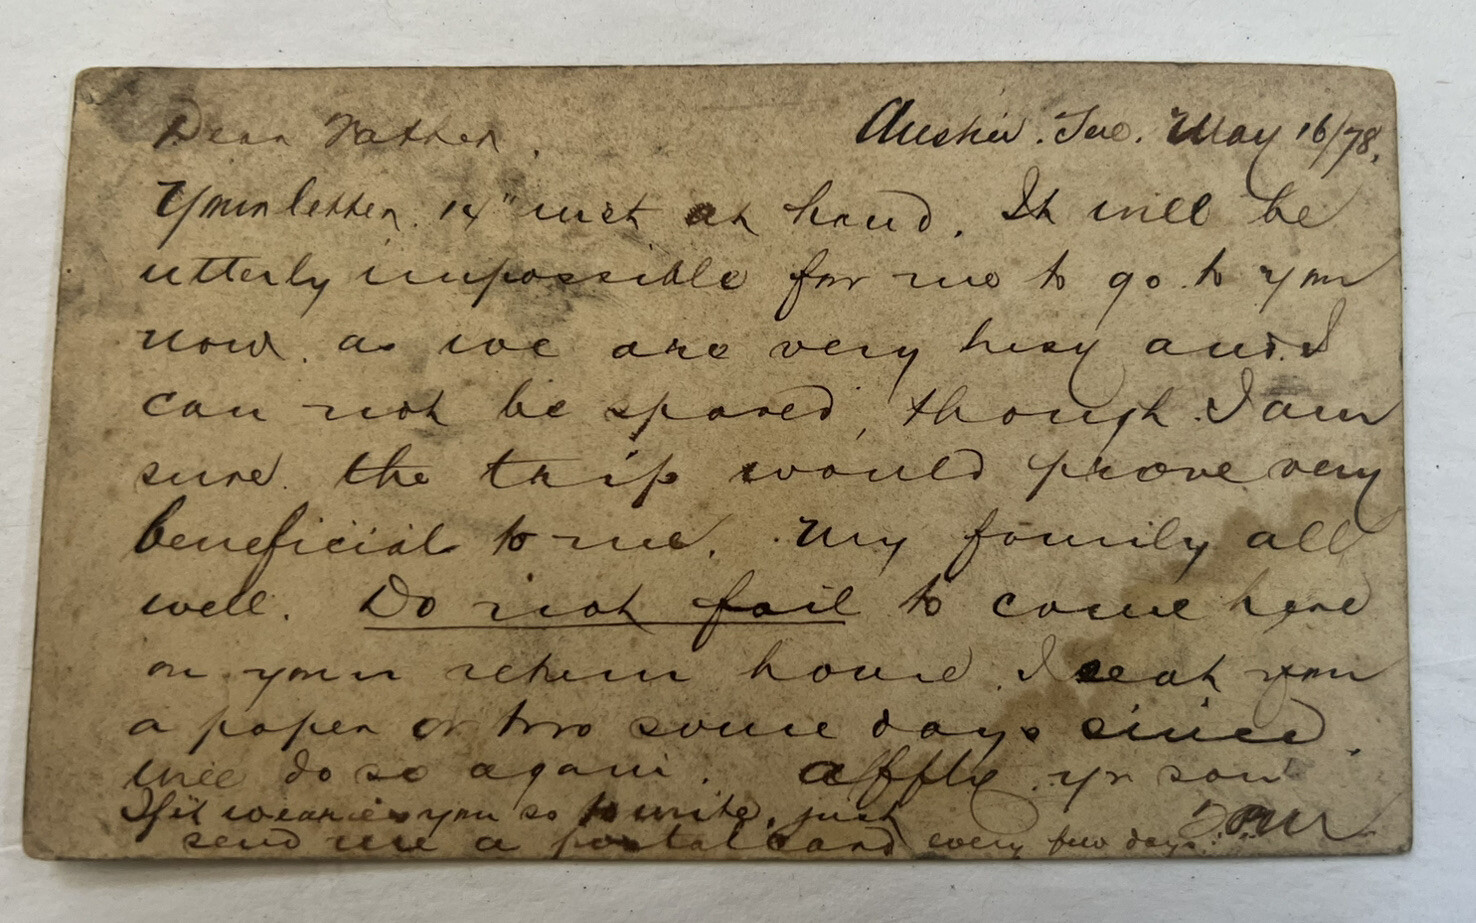 Dear Father. Austin. Tex. May 16/78.
Your letter 14" inst at hand. It will be
utterly impossible for me to go to you
now. as we are very busy and I
can not be spared, though I am
sure the trip would prove very
beneficial to me. My family all
well. Do not fail to come here
on your return home. I sent you
a paper or two some days since.
will do so again. affly yr son
If it wearies you so to write, just
send me a postal card every few days.